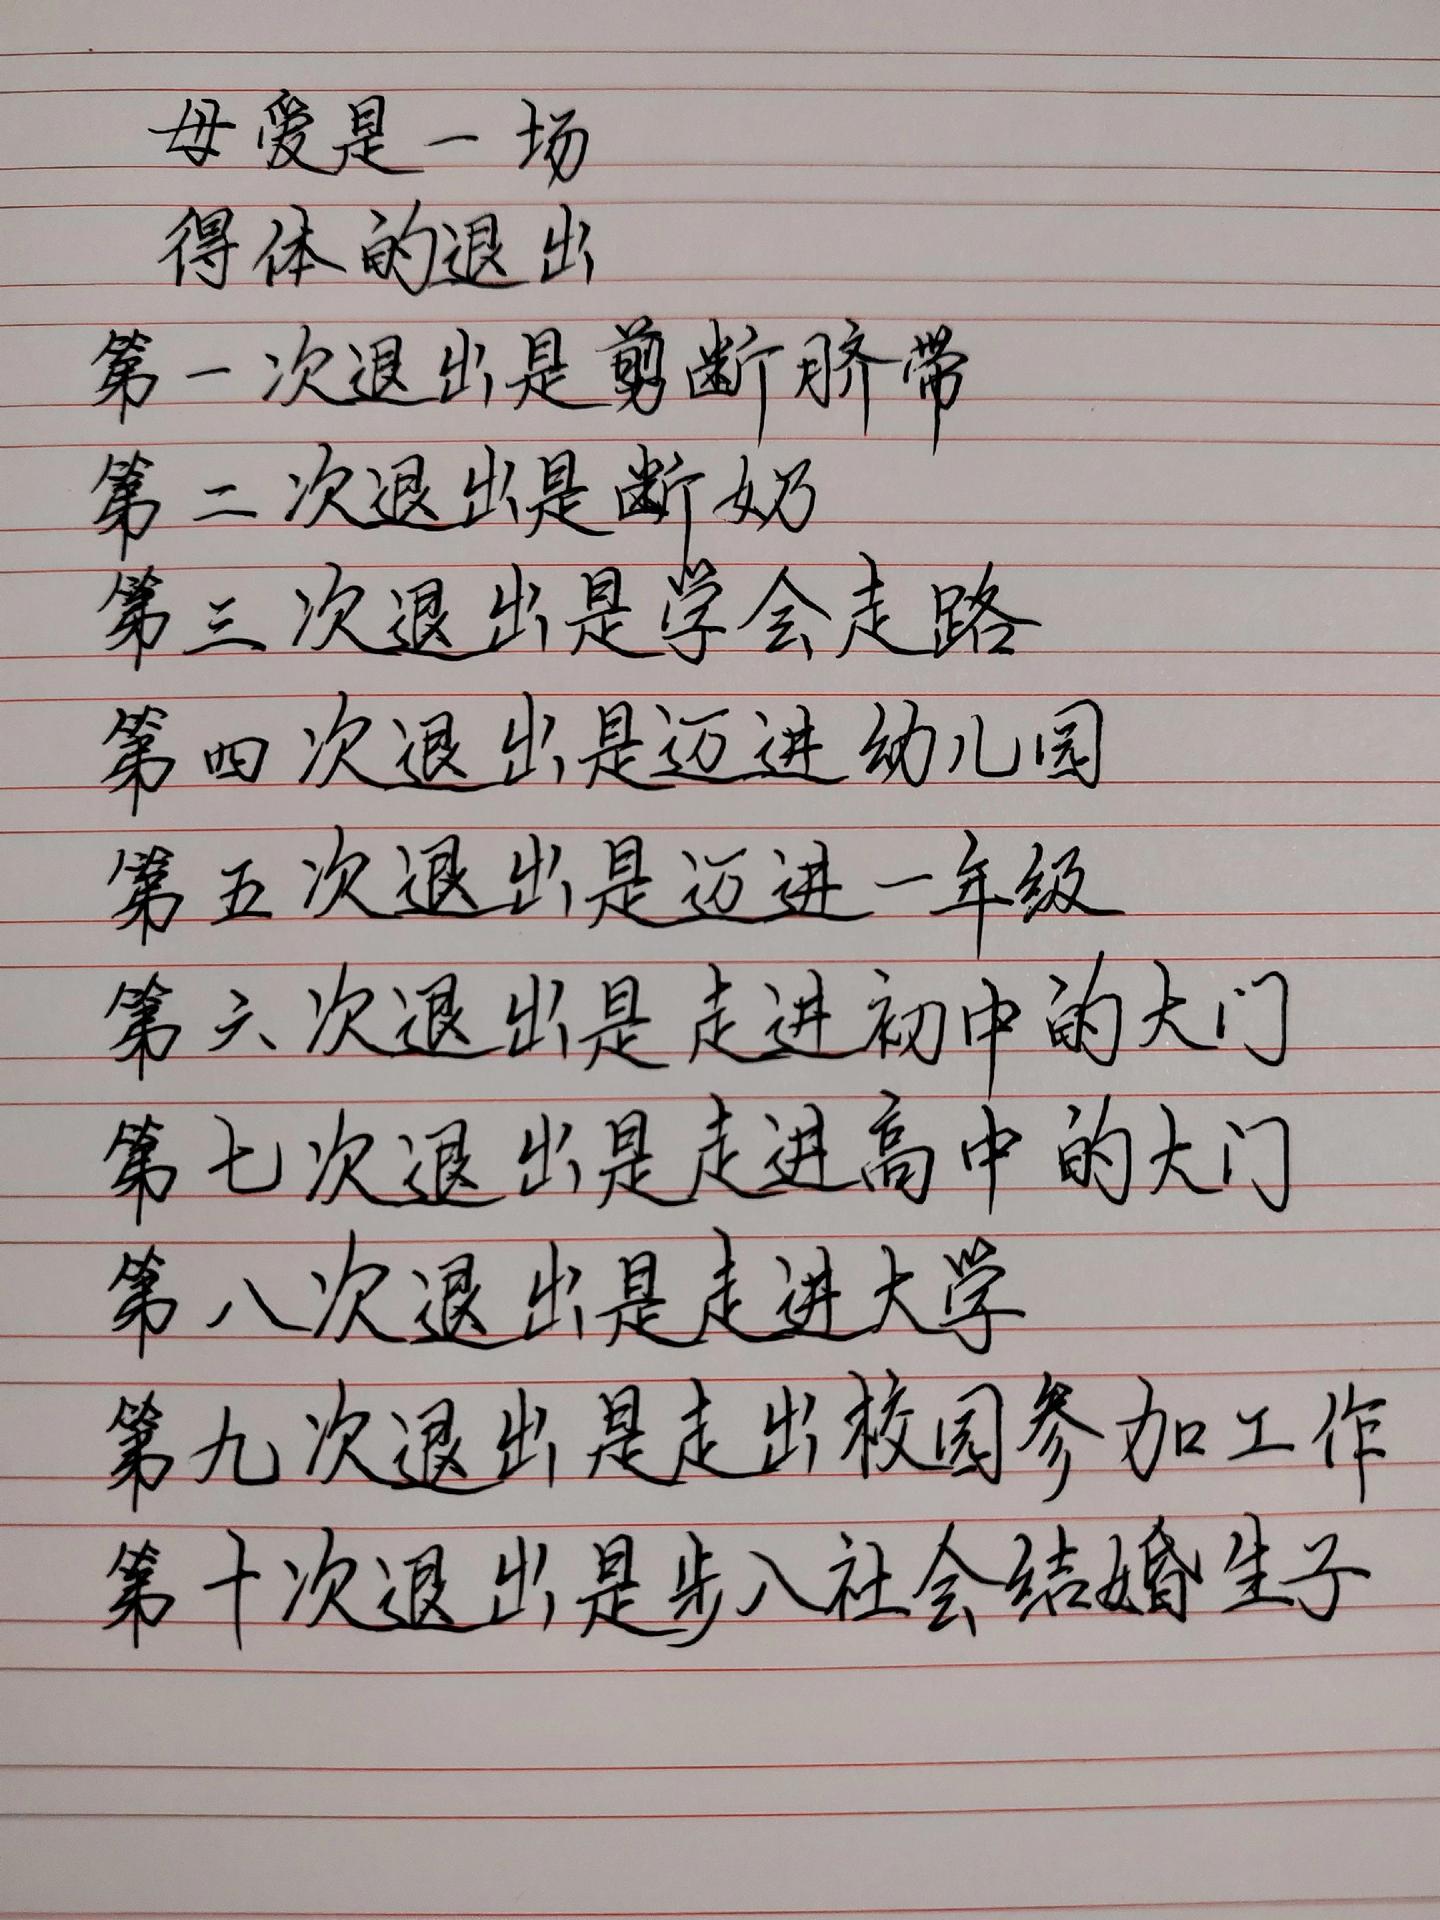 母爱是一场
得体的退出
第一次退出是剪断脐带
第二次退出是断奶
第三次退出是学会走路
第四次退出是迈进幼儿园
第五次退出是迈进一年级
第六次退出是走进初中的大门
第七次退出是走进高中的大门
第八次退出是走进大学
第九次退出是走出校园参加工作
第十次退出是步入社会结婚生子